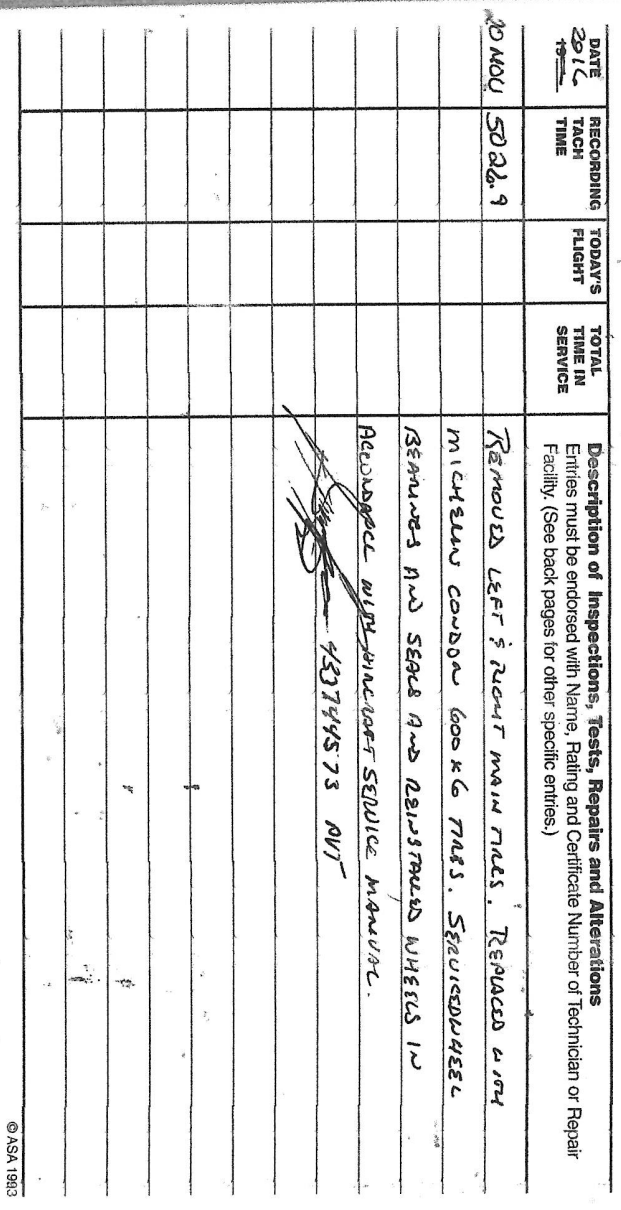 DATE
2016
19
RECORDING
TACH
TIME
TODAY'S
FLIGHT
TOTAL
TIME IN
SERVICE
Description of Inspections, Tests, Repairs and Alterations
Entries must be endorsed with Name, Rating and Certificate Number of Technician or Repair
Facility. (See back pages for other specific entries.)
20 NOV 5026.9 REMOVED LEFT & RIGHT MAIN TIRES. REPLACED WITH
MICHELIN CONDOR 600x6 TIRES. SERVICED WHEEL
BEARINGS AND SEALS AND REINSTALLED WHEELS IN
ACCORDANCE WITH AIRCRAFT SERVICE MANUAL.
453744573
© ASA 1993